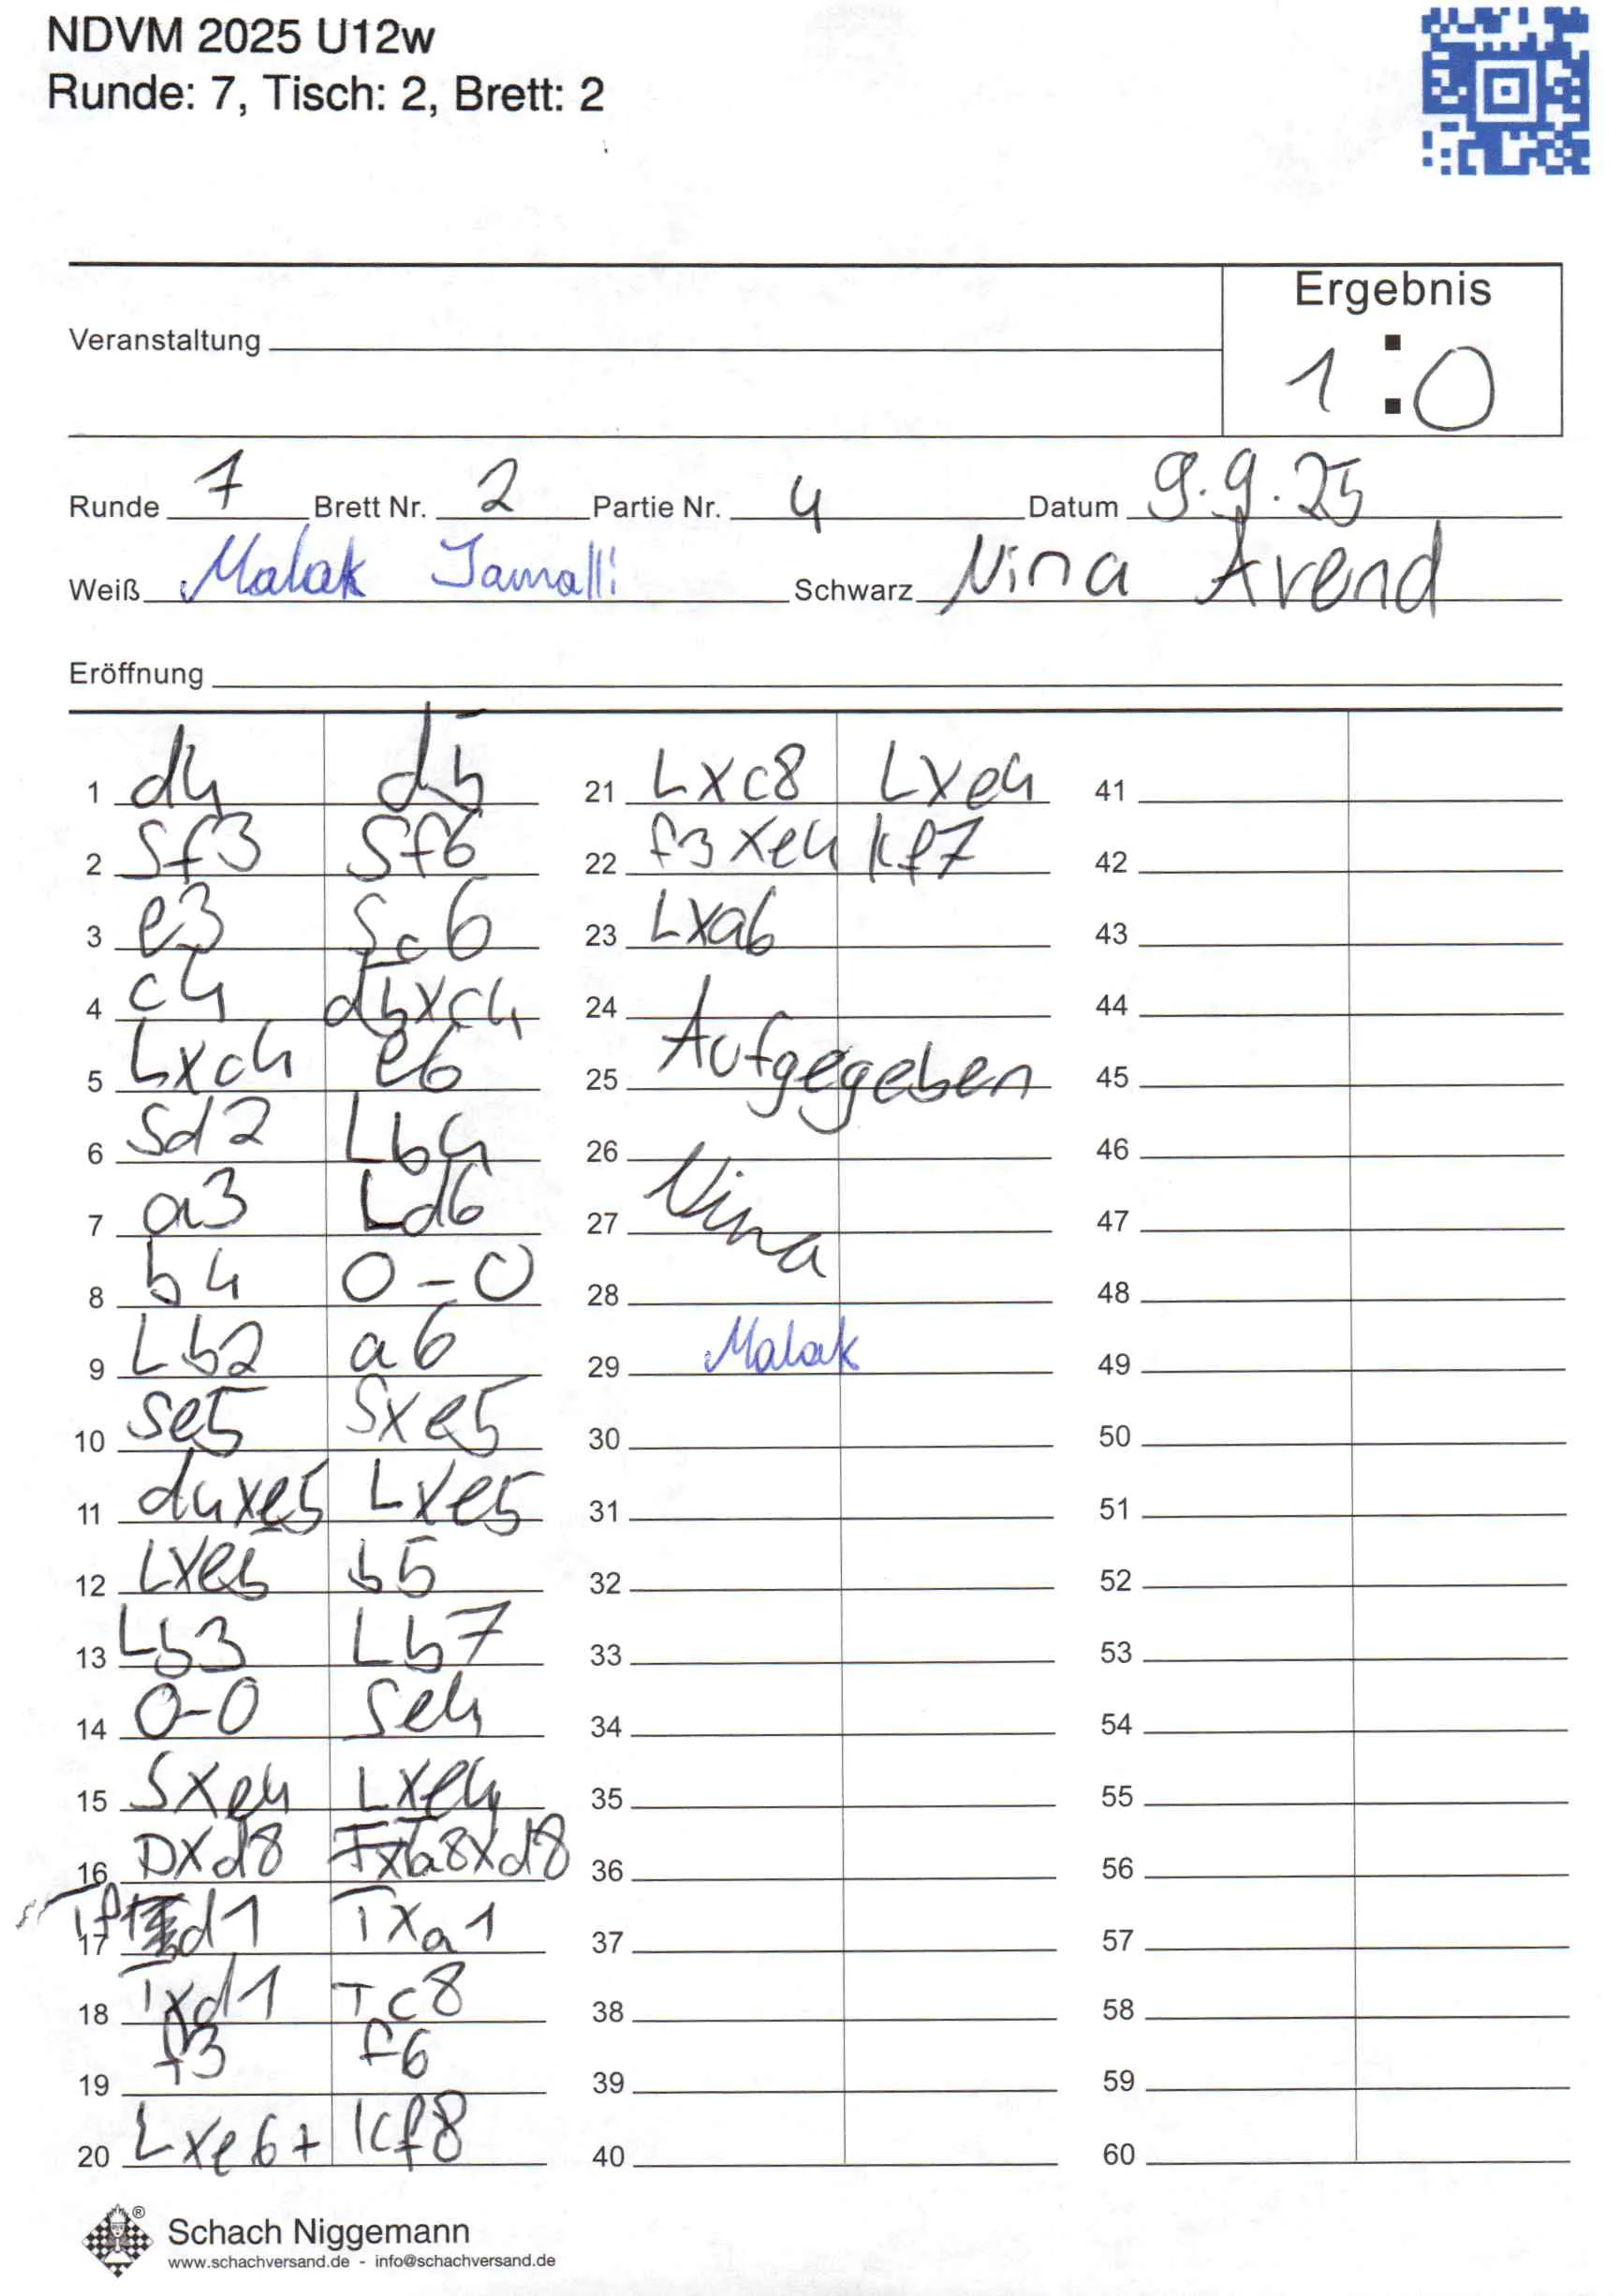 NDVM 2025 U12w
Runde: 7, Tisch: 2, Brett: 2
Ergebnis
Veranstaltung
1 : 0
Runde 7 Brett Nr. 2 Partie Nr. 4 Datum 9.9.25
Weiß Malak Jamalli Schwarz Nina Arend
Eröffnung
1 d4 d5
2 Sf3 Sf6
3 e3 Sc6
4 c4 d5xc4
5 Lxc4 e6
6 Sd2 Lb4
7 a3 Ld6
8 b4 0-0
9 Lb2 a6
10 Se5 Sxe5
11 d4xe5 Lxe5
12 Lxe5 b5
13 Lb3 Lb7
14 0-0 Se4
15 Sxe4 Lxe4
16 Dxd8 Ta8xd8
17 Tf1d1 Txa1
18 Txd1 Tc8
19 f3 f6
20 Lxe6+ Kf8
21 Lxc8 Lxe4
22 f3xe4 Kf7
23 Lxa6
24
25 Aufgegeben
26
27 Nina
28
29 Malak
30
31
32
33
34
35
36
37
38
39
40
41
42
43
44
45
46
47
48
49
50
51
52
53
54
55
56
57
58
59
60
®
Schach Niggemann
www.schachversand.de - info@schachversand.de